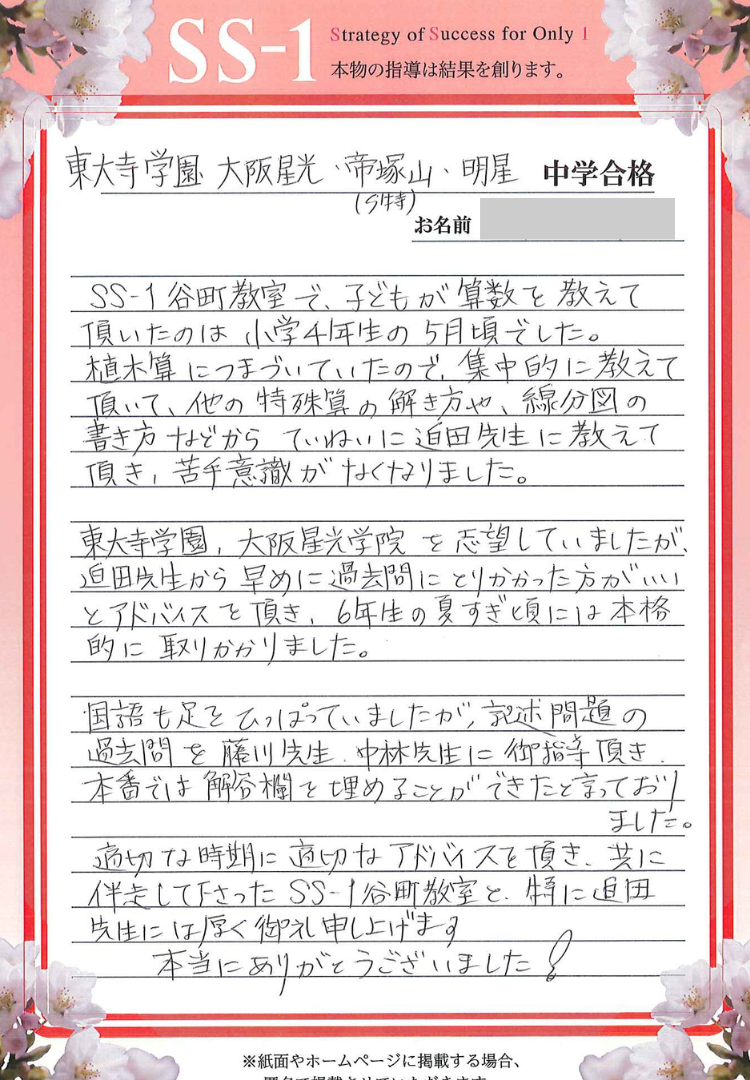 SS-1 Strategy of Success for Only 1
本物の指導は結果を創ります。
東大寺学園 大阪星光・帝塚山・明星 中学合格
(S特)
お名前
SS-1谷町教室で、子どもが算数を教えて
頂いたのは小学4年生の5月頃でした。
植木算につまづいていたので、集中的に教えて
頂いて、他の特殊算の解き方や、線分図の
書き方などからていねいに迫田先生に教えて
頂き、苦手意識がなくなりました。
東大寺学園、大阪星光学院を志望していましたが、
迫田先生から早めに過去問にとりかかった方がいい
とアドバイスを頂き、6年生の夏すぎ頃には本格
的に取りかかりました。
国語も足をひっぱっていましたが、記述問題の
過去問を藤川先生、中林先生に御指導頂き、
本番では解答欄を埋めることができたと言っており
ました。
適切な時期に適切なアドバイスを頂き、共に
伴走して下さったSS-1谷町教室と、特に迫田
先生には厚く御礼申し上げます
本当にありがとうございました!
※紙面やホームページに掲載する場合、
匿名で掲載させていただきます。